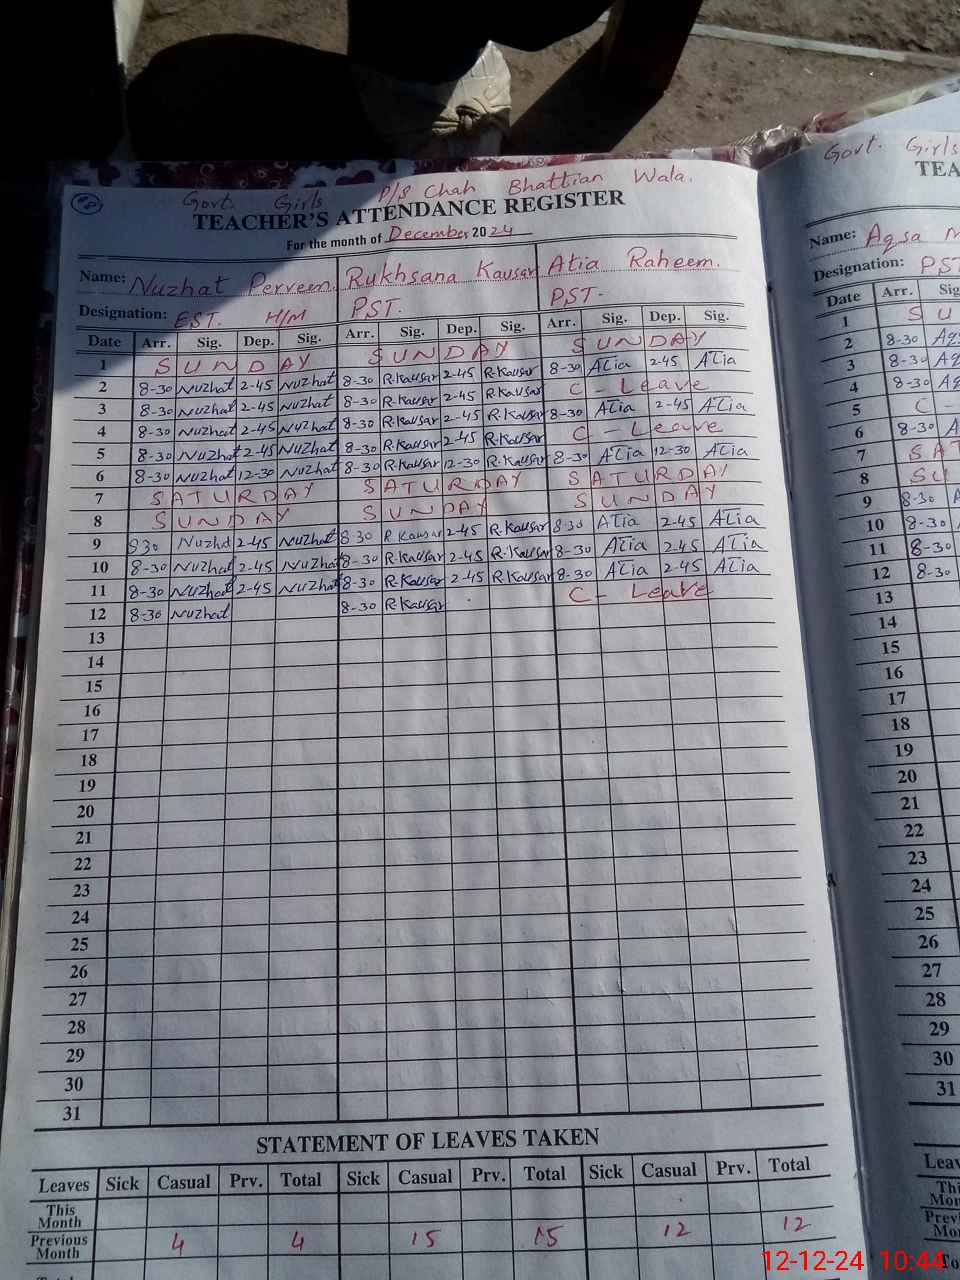 Govt. Girls P/s Chah Bhattian Wala.
TEACHER'S ATTENDANCE REGISTER
For the month of December 2024
Name: Nuzhat Perveen. Rukhsana Kausar Atia Raheem.
Designation: EST. H/M PST. PST.
Date Arr. Sig. Dep. Sig. Arr. Sig. Dep. Sig. Arr. Sig. Dep. Sig.
1 SUNDAY SUNDAY SUNDAY
2 8-30 Nuzhat 2-45 Nuzhat 8-30 R.Kausar 2-45 R.Kausar 8-30 Atia 2-45 Atia
3 8-30 Nuzhat 2-45 Nuzhat 8-30 R.Kausar 2-45 R.Kausar C-Leave
4 8-30 Nuzhat 2-45 Nuzhat 8-30 R.Kausar 2-45 R.Kausar 8-30 Atia 2-45 Atia
5 8-30 Nuzhat 2-45 Nuzhat 8-30 R.Kausar 2-45 R.Kausar C-Leave
6 8-30 Nuzhat 12-30 Nuzhat 8-30 R.Kausar 12-30 R.Kausar 8-30 Atia 12-30 Atia
7 SATURDAY SATURDAY SATURDAY
8 SUNDAY SUNDAY SUNDAY
9 830 Nuzhat 2-45 Nuzhat 8-30 R Kausar 2-45 R.Kausar 8-30 Atia 2-45 Atia
10 8-30 Nuzhat 2-45 Nuzhat 8-30 R.Kausar 2-45 R.Kausar 8-30 Atia 2-45 Atia
11 8-30 Nuzhat 2-45 Nuzhat 8-30 R.Kausar 2-45 R.Kausar 8-30 Atia 2-45 Atia
12 8-30 Nuzhat 8-30 R.Kausar C-Leave
13
14
15
16
17
18
19
20
21
22
23
24
25
26
27
28
29
30
31
STATEMENT OF LEAVES TAKEN
Leaves Sick Casual Prv. Total Sick Casual Prv. Total Sick Casual Prv. Total
This Month
Previous Month 4 4 15 15 12 12
Govt. Girls
TEA
Name: Aqsa
Designation: PST
Date Arr. Sig
1 SU
2 8-30
3 8-30
4 8-30
5 C -
6 8-30
7 SAT
8 SU
9 8-30
10 8-30
11 8-30
12 8-30
13
14
15
16
17
18
19
20
21
22
23
24
25
26
27
28
29
30
31
12-12-24 10:44